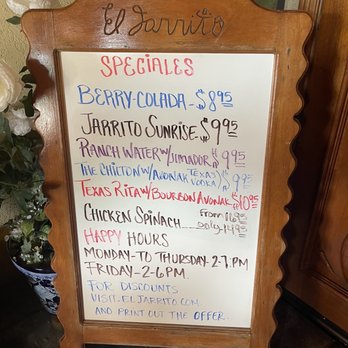 El Jarrito
SPECIALES
BERRY-COLADA-$8.95
JARRITO SUNRISE-$9.95
RANCH WATER W/JIMADOR $9.95
THE CHILTON W/AVONAK TEXAS VODKA $9.95
TEXAS RITA W/BOURBON AVONAK $10.95
CHICKEN SPINACH From 16.95 only 14.95
HAPPY HOURS
MONDAY-TO THURSDAY-2-7 PM
FRIDAY-2-6 PM
FOR DISCOUNTS
VISIT ELJARRITO.COM
AND PRINT OUT THE OFFER.